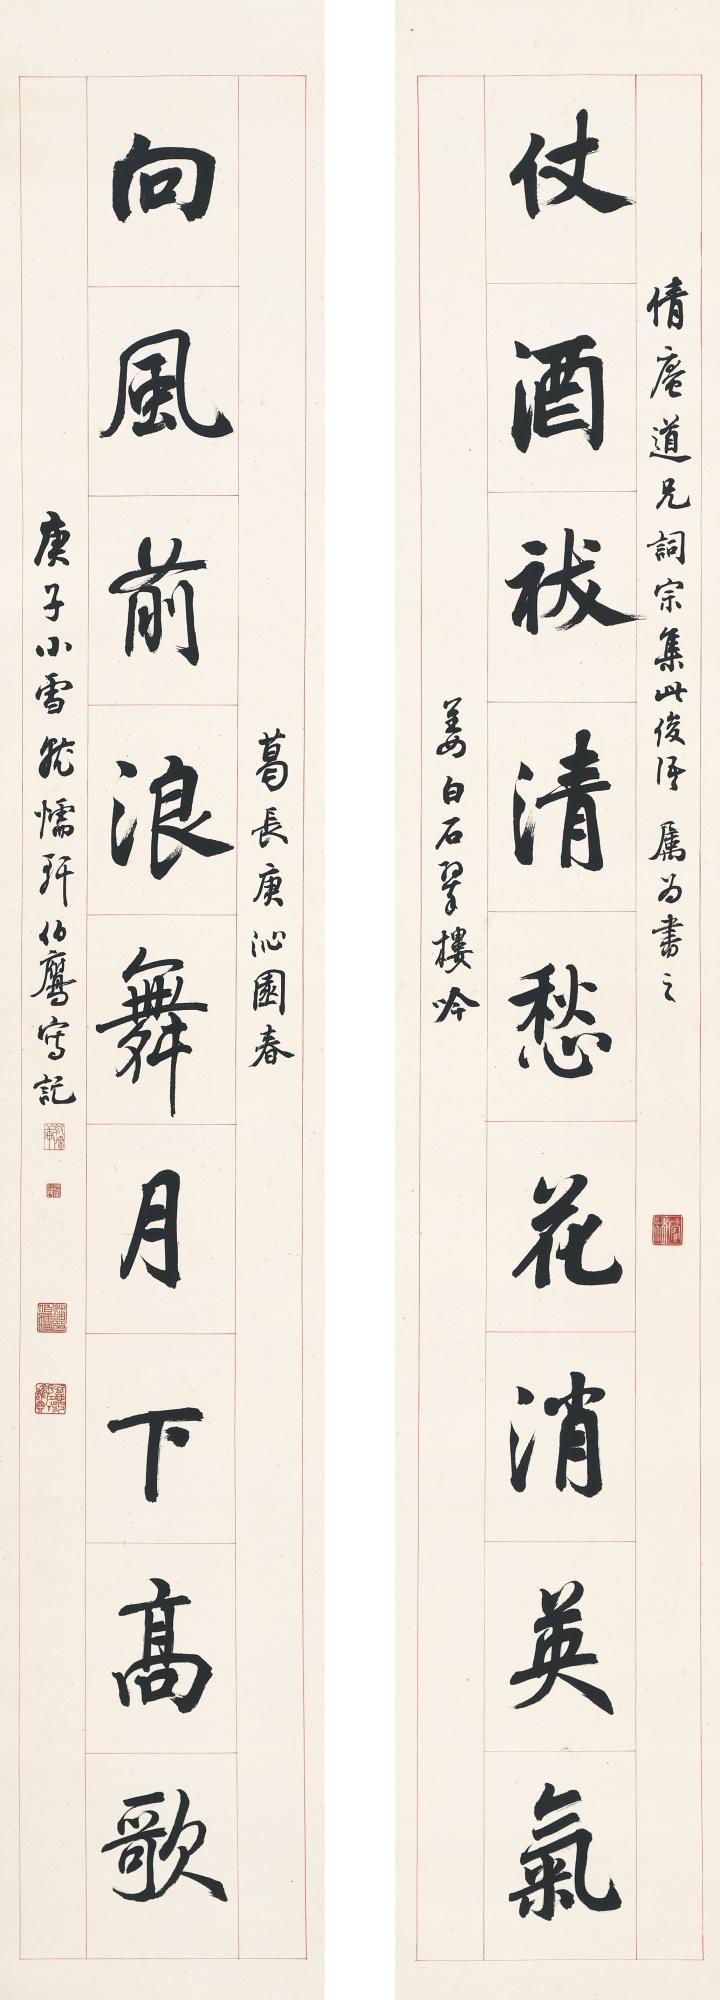 倩庵道兄詞宗集此俊語 属为書之
仗酒祓清愁花消英氣
姜白石翠樓吟
葛長庚沁園春
向風前浪舞月下高歌
庚子小雪 懦玕伯鷹寫記